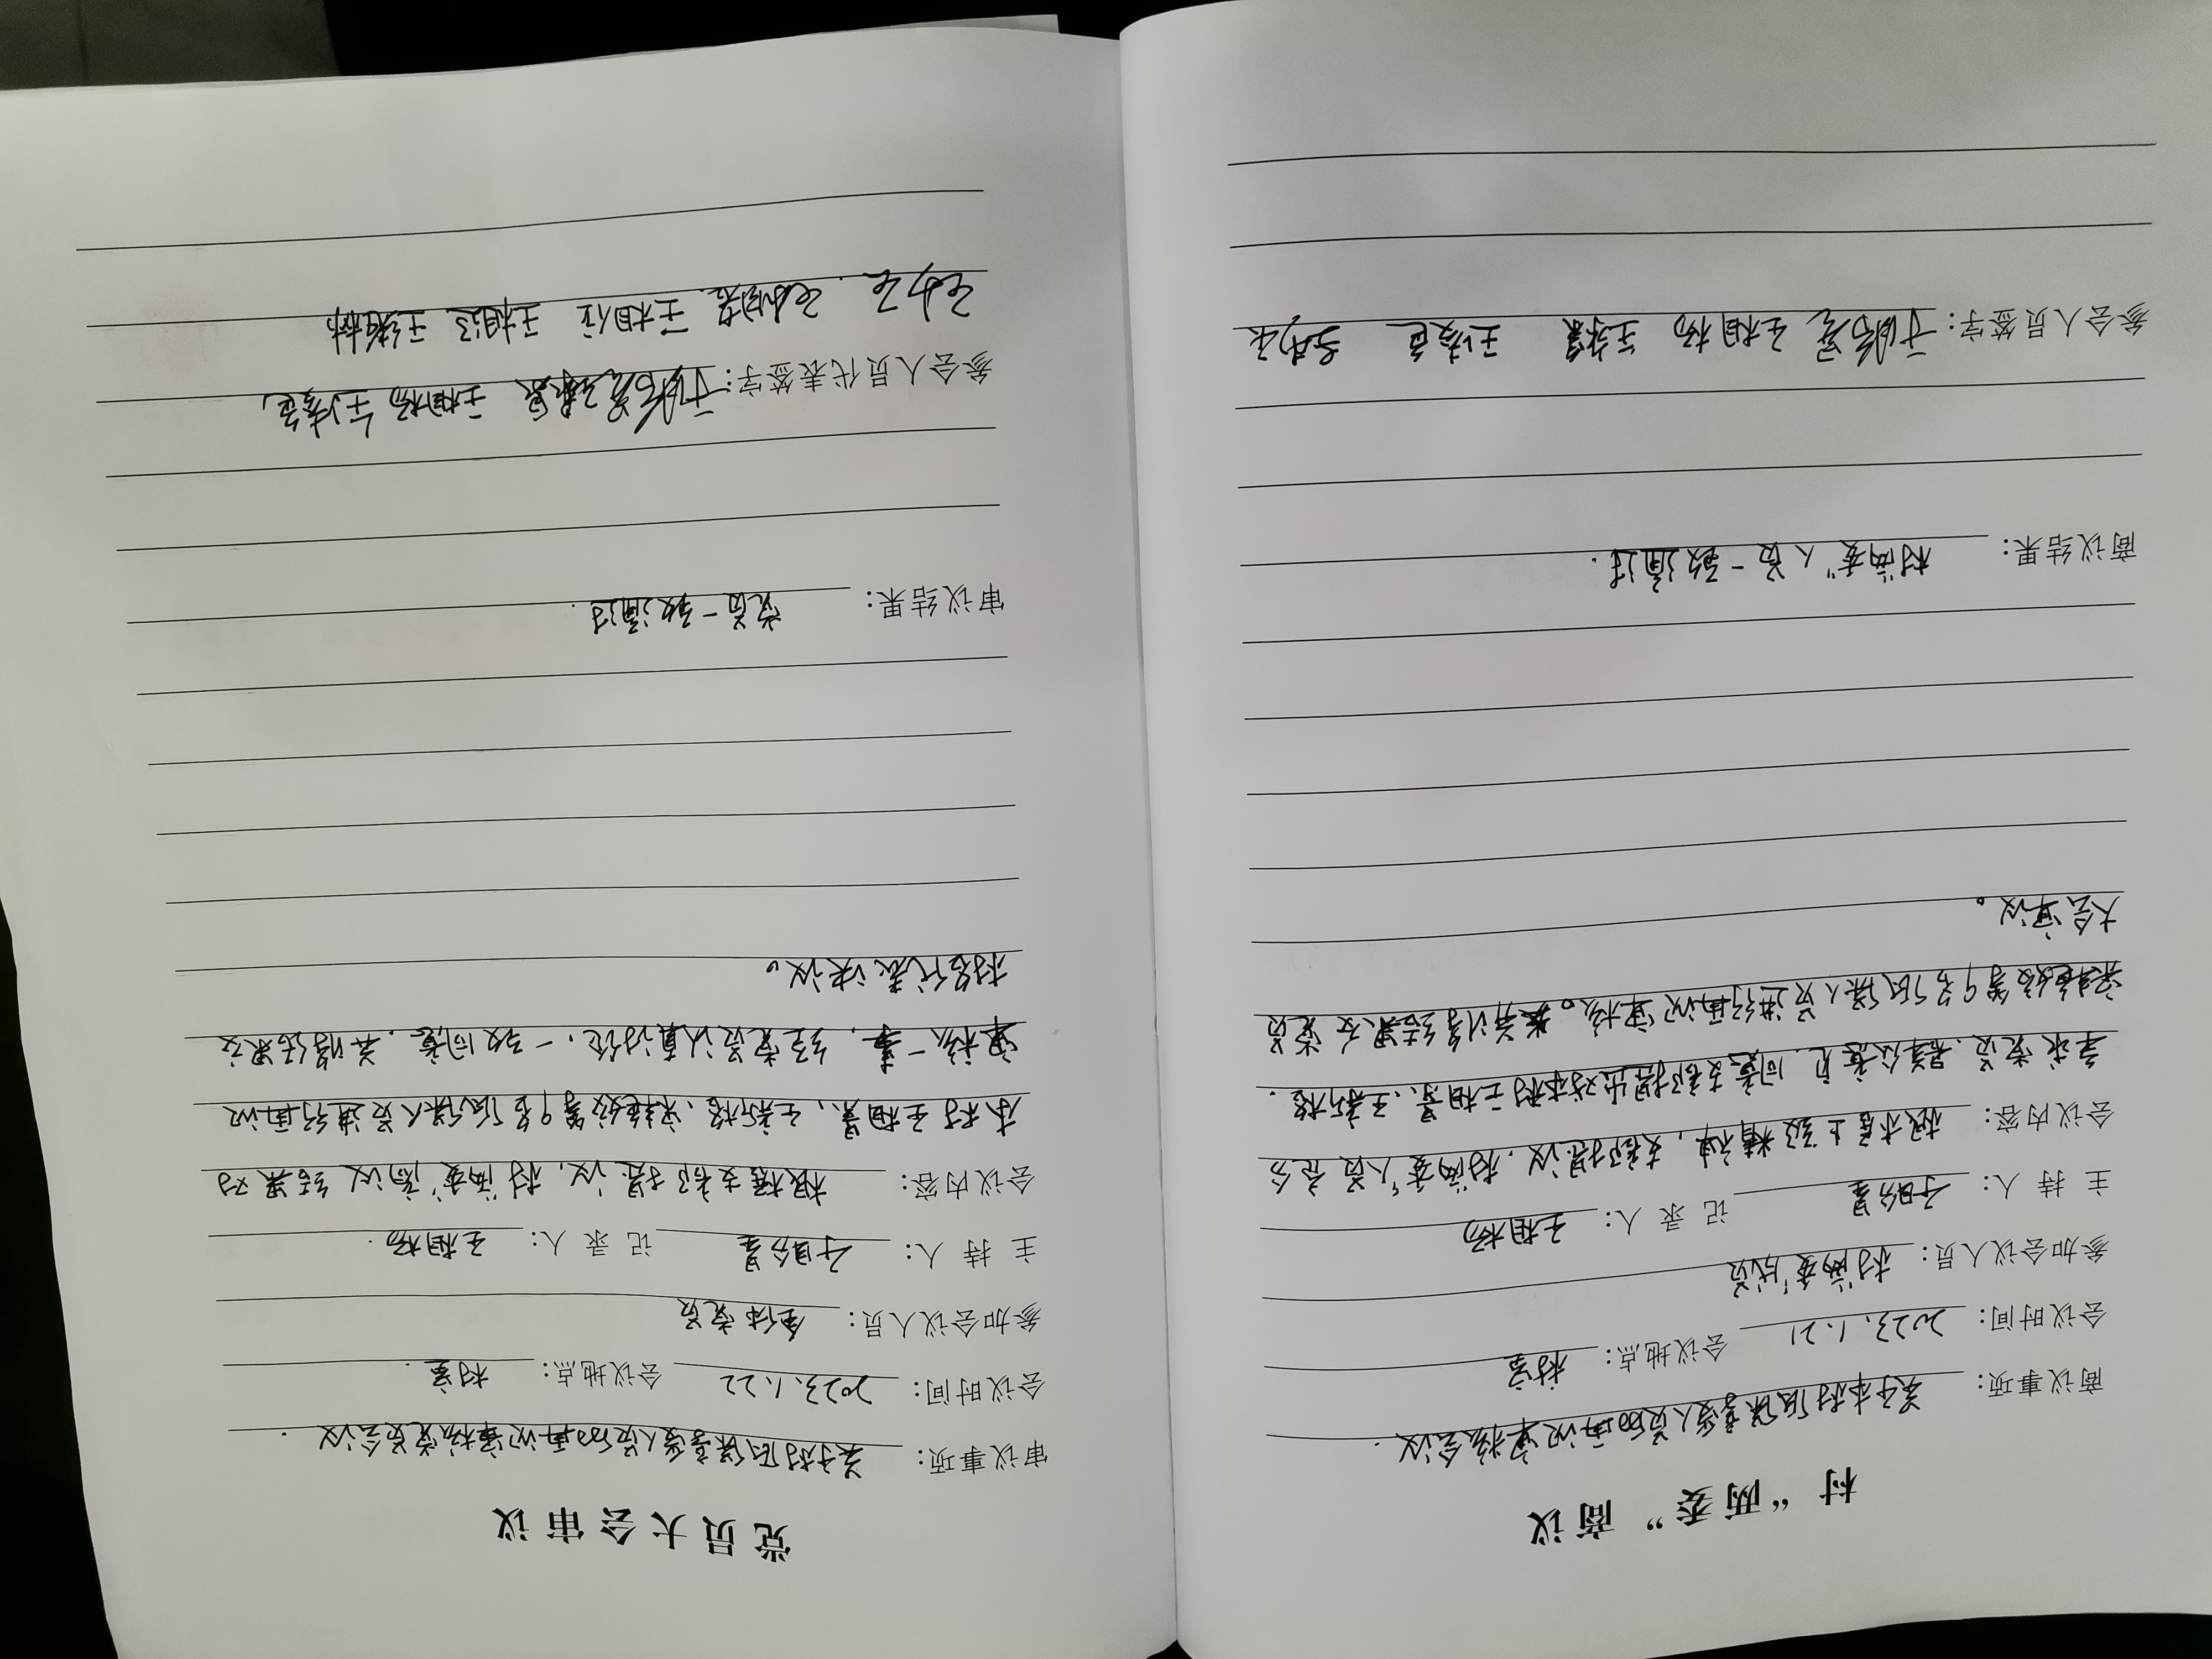 村“两委”商议
商议事项：关于本村低保享受人员的再次审核会议.
会议时间：2023、1.21 会议地点：村室
参加会议人员：村“两委”成员
主持人：于盼星 记录人：王相杨
会议内容：根据上级精神，支部提议，村“两委”人员充分
争求党员、群众意见，同意支部提出对本村王相景、王新格.
宋艳姣等9名低保人员进行再次审核。并将结果交党员
大会审议。
商议结果：村“两委”人员一致通过.
参会人员签字：于盼星 王相杨 王凌色
党员大会审议
审议事项：关于村低保享受人员的再次审核党员会议.
会议时间：2023、1.22 会议地点：村室.
参加会议人员：全体党员
主持人：于盼星 记录人：王相杨.
会议内容：根据支部提议，村“两委”商议结果对
本村王相景、王新格、宋艳姣等9名低保人员进行再次
审核一事，经党员认真讨论，一致同意，并将结果交
村名代表决议。
审议结果：党员一致通过.
参会人员代表签字：于盼星 王相杨 王凌色
王相位